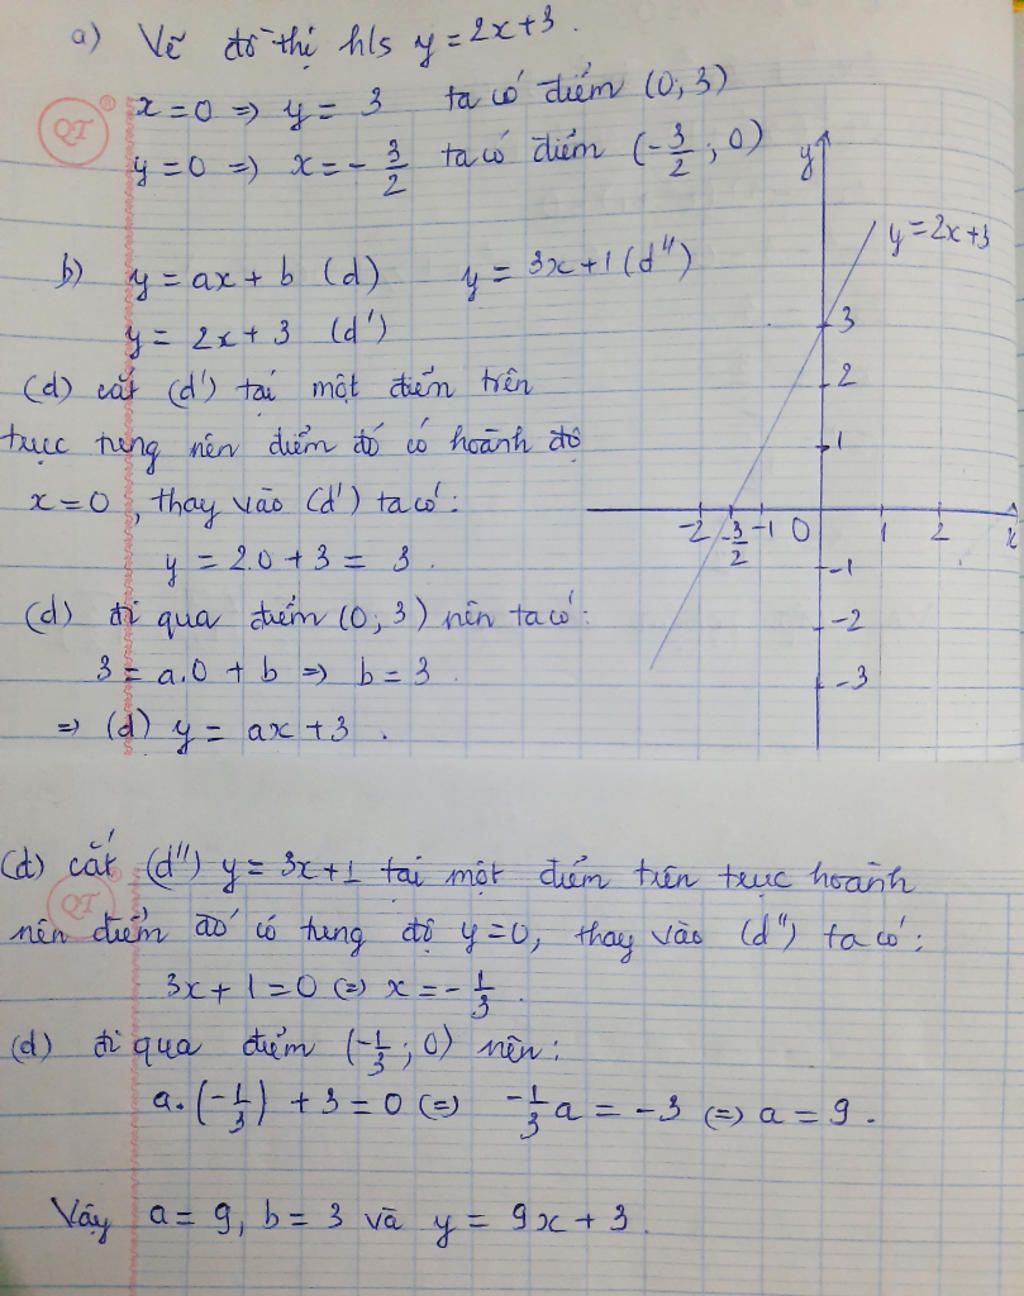 a) Vẽ đồ thị h/s y = 2x+3.
x=0 => y = 3 ta có điểm (0; 3)
QT
®
y=0 => x = -3/2 ta có điểm (-3/2; 0)
b) y = ax + b (d) y = 3x+1 (d'')
y = 2x+3 (d')
(d) cắt (d') tại một điểm trên
trục tung nên điểm đó có hoành độ
x=0, thay vào (d') ta có:
y = 2.0 + 3 = 3.
(d) đi qua điểm (0; 3) nên ta có:
3 = a.0 + b => b = 3.
=> (d) y = ax + 3.
y
y = 2x+3
3
2
1
-2 -3/2 -1 0 1 2 x
-1
-2
-3
(d) cắt (d'') y = 3x+1 tại một điểm trên trục hoành
QT
nên điểm đó có tung độ y=0, thay vào (d'') ta có:
3x+1=0 (=) x = -1/3.
(d) đi qua điểm (-1/3; 0) nên:
a.(-1/3) + 3 = 0 (=) -1/3 a = -3 (=) a = 9.
Vậy a = 9, b = 3 và y = 9x + 3.